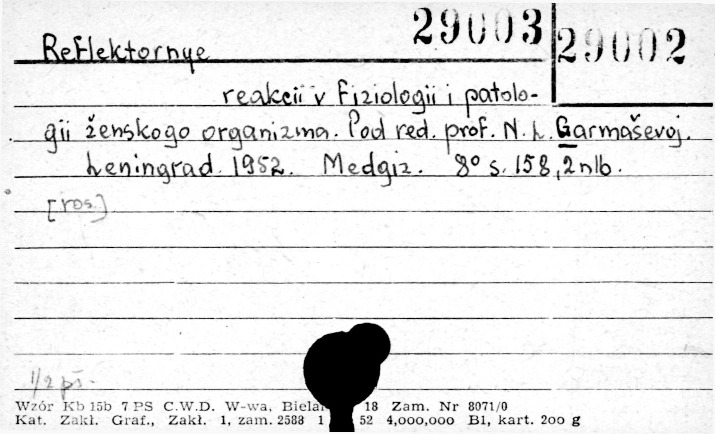 29003 29002
Reflektornye
reakcii v fiziologii i patolo-
gii ženskogo organizma. Pod red. prof. N. L. Garmaševoj.
Leningrad. 1952. Medgiz. 8° s. 158, 2 nlb.
[ros.]
1/2 pł.
Wzór Kb 15b 7 PS C.W.D. W-wa, Biela 18 Zam. Nr 8071/0
Kat. Zakł. Graf., Zakł. 1, zam. 2588 1 52 4,000,000 B1, kart. 200 g